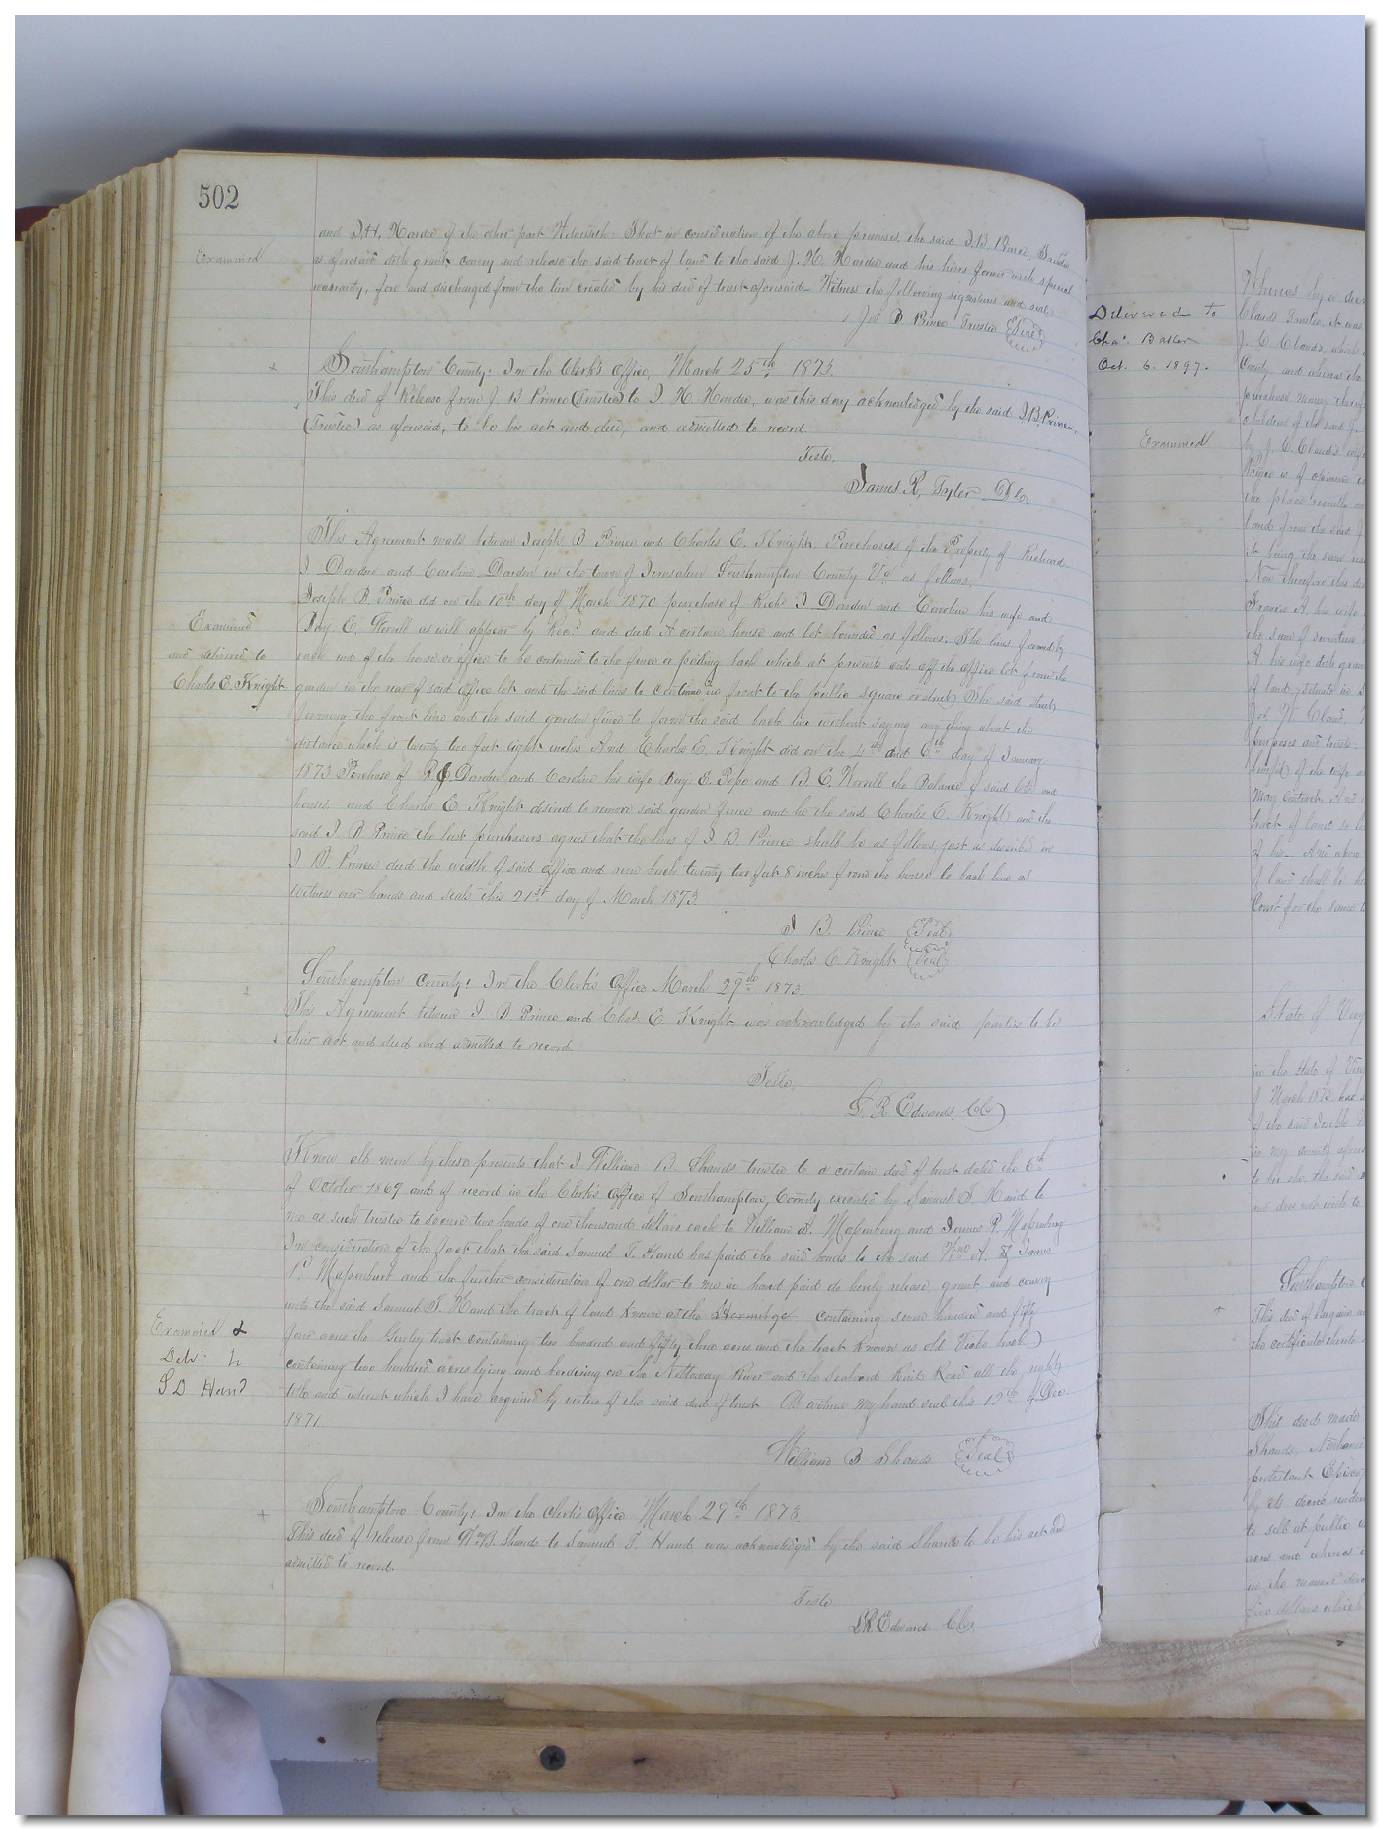 502
Examined
and J.H. Hardee of the other part Witnesseth. That in consideration of the above premises, the said J.B. Prince, Trustee
as aforesaid doth grant convey and release the said tract of land to the said J. H. Hardee and his heirs forever with special
warranty, free and discharged from the lien created by his deed of trust aforesaid. Witness the following signature and seal
Jos B. Prince Trustee Seal
Southampton County: In the Clerk's Office, March 25th 1873.
This deed of Release from J B Prince (Trustee) to J. H. Hardee, was this day acknowledged by the said J.B. Prince
(Trustee) as aforesaid, to be his act and deed, and admitted to record.
Teste.
James R. Tyler D.C.
This Agreement made between Joseph B Prince and Charles E. Knight Purchasers of the Property of Richard
J Darden and Caroline Darden in the town of Jerusalem Southampton County Va as follows,
Joseph B. Prince did on the 10th day of March 1870 purchase of Richd J Darden and Caroline his wife and
Examined
and delivered to
Charles E. Knight
C. Worrell as will appear by and deed A certain house and lot bounded as follows. The lines formed by
each end of the house or office to be continued to the fence or pailing back which at present cuts off the office lot from the
garden in the rear of said office lot and the said lines to continue in front to the public square or street, The said street
forming the front line and the said garden fence to form the said back line without saying any thing about the
distance which is twenty two feet eight inches And Charles E. Knight did on the 4th and 6th day of January
1873 Purchase of R J Darden and Caroline his wife Benj. E. Pope and B. C. Worrell the Balance of said lot and
houses and Charles E Knight desired to remove said garden fence and he the said Charles E. Knight and the
said J B Prince the last purchasers agree that the lines of J. B Prince shall be as follows just as described in
J B. Prince deed the width of said office and run back twenty two feet 8 inches from the house to back line as
witness our hands and seals this 21st day of March 1873
J B. Prince Seal
Charles E. Knight Seal
Southampton County: In the Clerk's Office March 29th 1873
This Agreement between J B Prince and Chas. E. Knight was acknowledged by the said parties to be
their act and deed and admitted to record
Teste,
L R Edwards C.C.
Know all men by these presents that I William B. Shands trustee to a certain deed of trust dated the 6th
of October 1869 and of record in the Clerk's Office of Southampton County executed by Samuel T. Hand to
me as such trustee to secure two bonds of one thousand dollars each to William A. Massenburg and James P. Massenburg
In consideration of the fact that the said Samuel T. Hand has paid the said bonds to the said Wm A. & James
P. Massenburg and the further consideration of one dollar to me in hand paid do hereby release, grant and convey
unto the said Samuel T. Hand the tract of land known as the Hermitage containing seven hundred and fifty
Examined &
Deld to
S D Hand
four acres the Gurley tract containing two hundred and fifty three acres and the tract known as old tract
containing two hundred acres lying and bordering on the Nottoway River and the Seaboard Rail Road all the right
title and interest which I have acquired by virtue of the said deed of trust As witness my hand seal this 19th of Dec.
1871.
William B Shands Seal
Southampton County: In the Clerk's Office March 29th 1873
This deed of release from Wm B. Shands to Samuel T. Hand was acknowledged by the said Shands to be his act and
admitted to record.
Teste
L R Edwards C.C.
Delivered to
Chas. Baker
Oct. 6. 1897.
Examined
Whereas by a deed
Claud Trustee, it was
J. C. Claud's
County and whereas the
purchase money
children of the said J.
by J. C. Claud's wife
land from the said J
it being the same
Now therefore this
Francis A. his wife
the sum of seventeen
A his wife doth grant
of land, situate in
purposes and
Court for the same
State of Virg
in the State of Virg
of March 1873 has
Southampton
This deed of
the certificate thereto
This deed made
Shands,
protestant Episcop
to sell at public